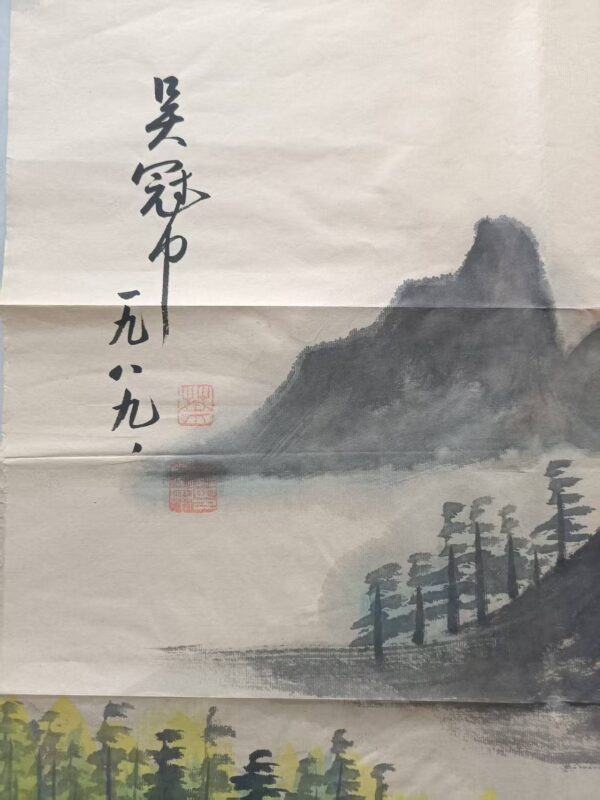 吴冠中
一九八九、